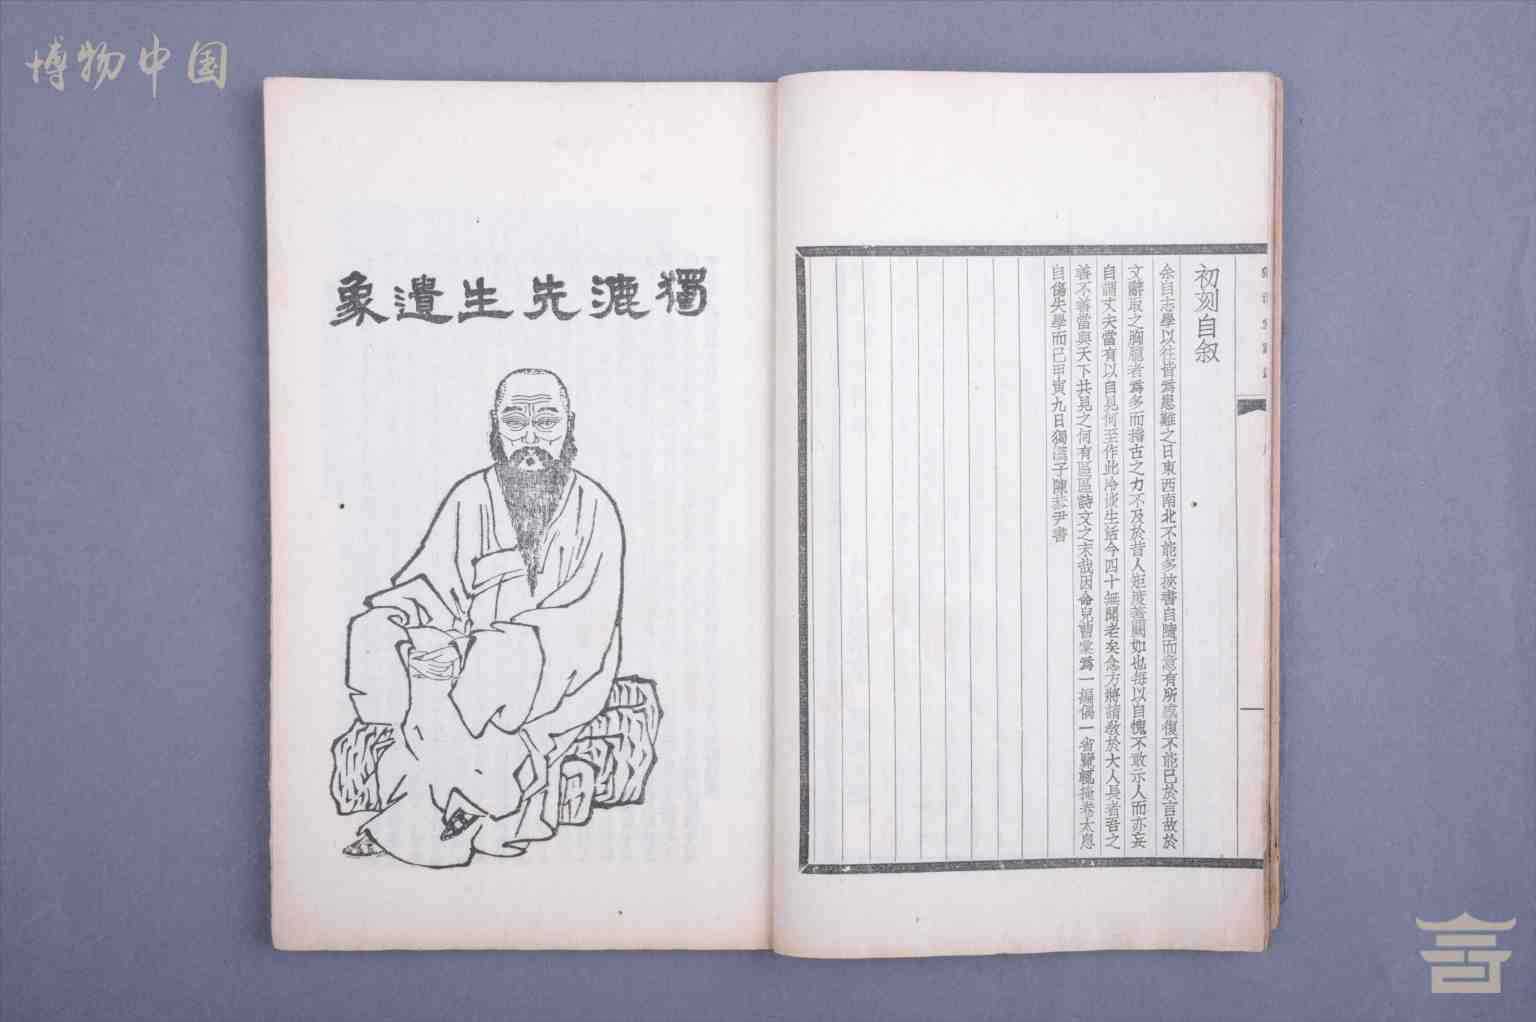 博物中国
初刻自叙
余自志學以往皆為患難之日東西南北不能多挾書自隨而意有所感復不能已於言故於
文辭取之胸臆者為多而稽古之力不及於昔人矩度蓋闕如也每以自愧不敢示人而亦妄
自謂丈夫當有以自見何至作此冷淡生活今四十無聞老矣念方將請教於大人長者吾之
善不善當與天下共見之何有區區詩文之末哉因命兒曹彙為一編偶一省覽輒掩卷太息
自傷失學而已甲寅九日獨漉子陳恭尹書
獨漉先生遺象